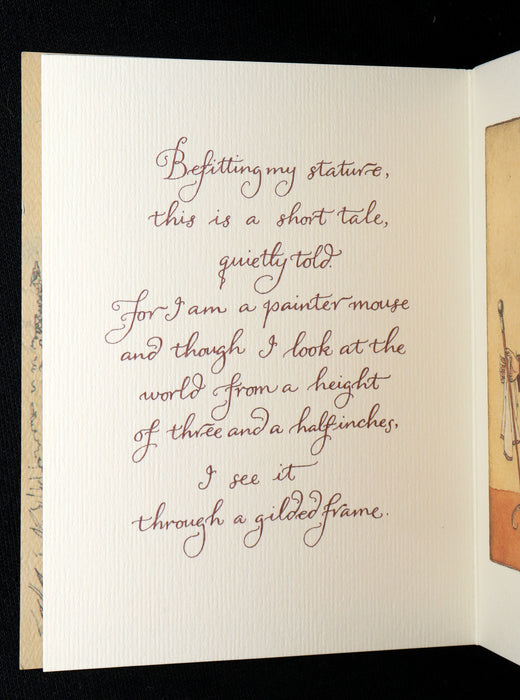 Befitting my stature,
this is a short tale,
quietly told.
For I am a painter mouse
and though I look at the
world from a height
of three and a half inches,
I see it
through a gilded frame.